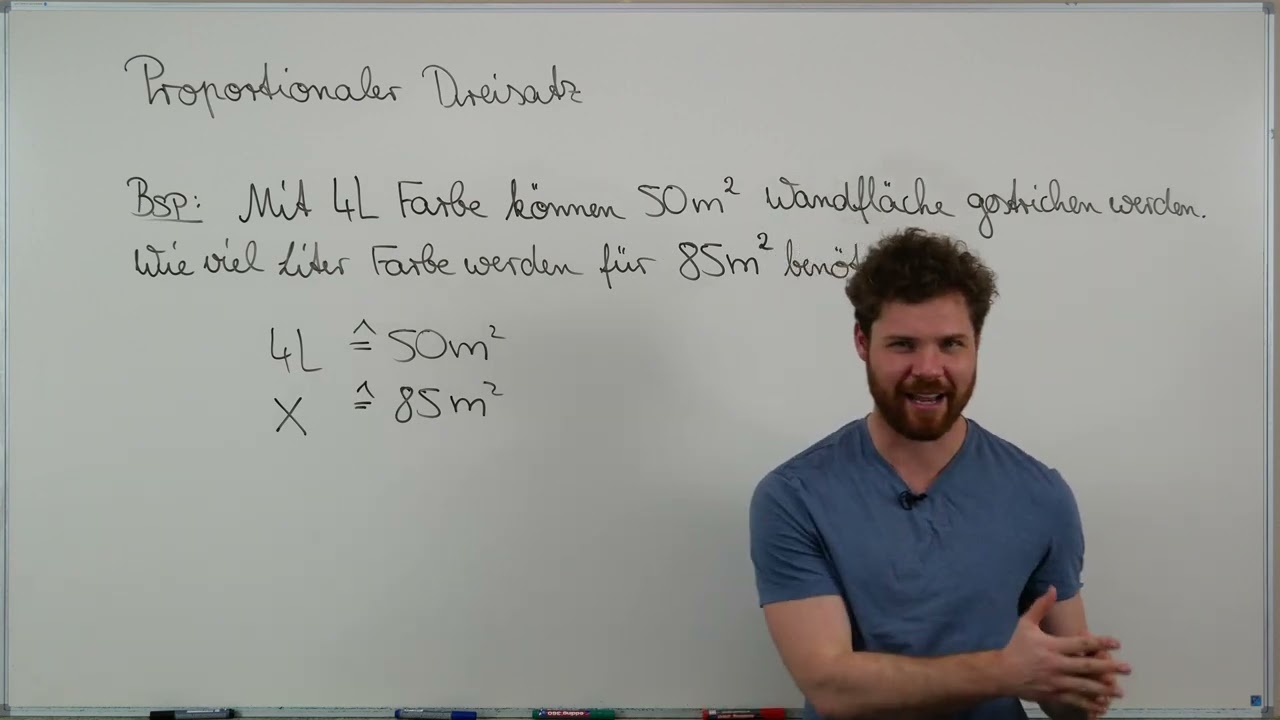 Proportionaler Dreisatz
Bsp: Mit 4L Farbe können 50m² Wandfläche gestrichen werden.
Wie viel Liter Farbe werden für 85m² benöt
4L ≙ 50m²
X ≙ 85m²